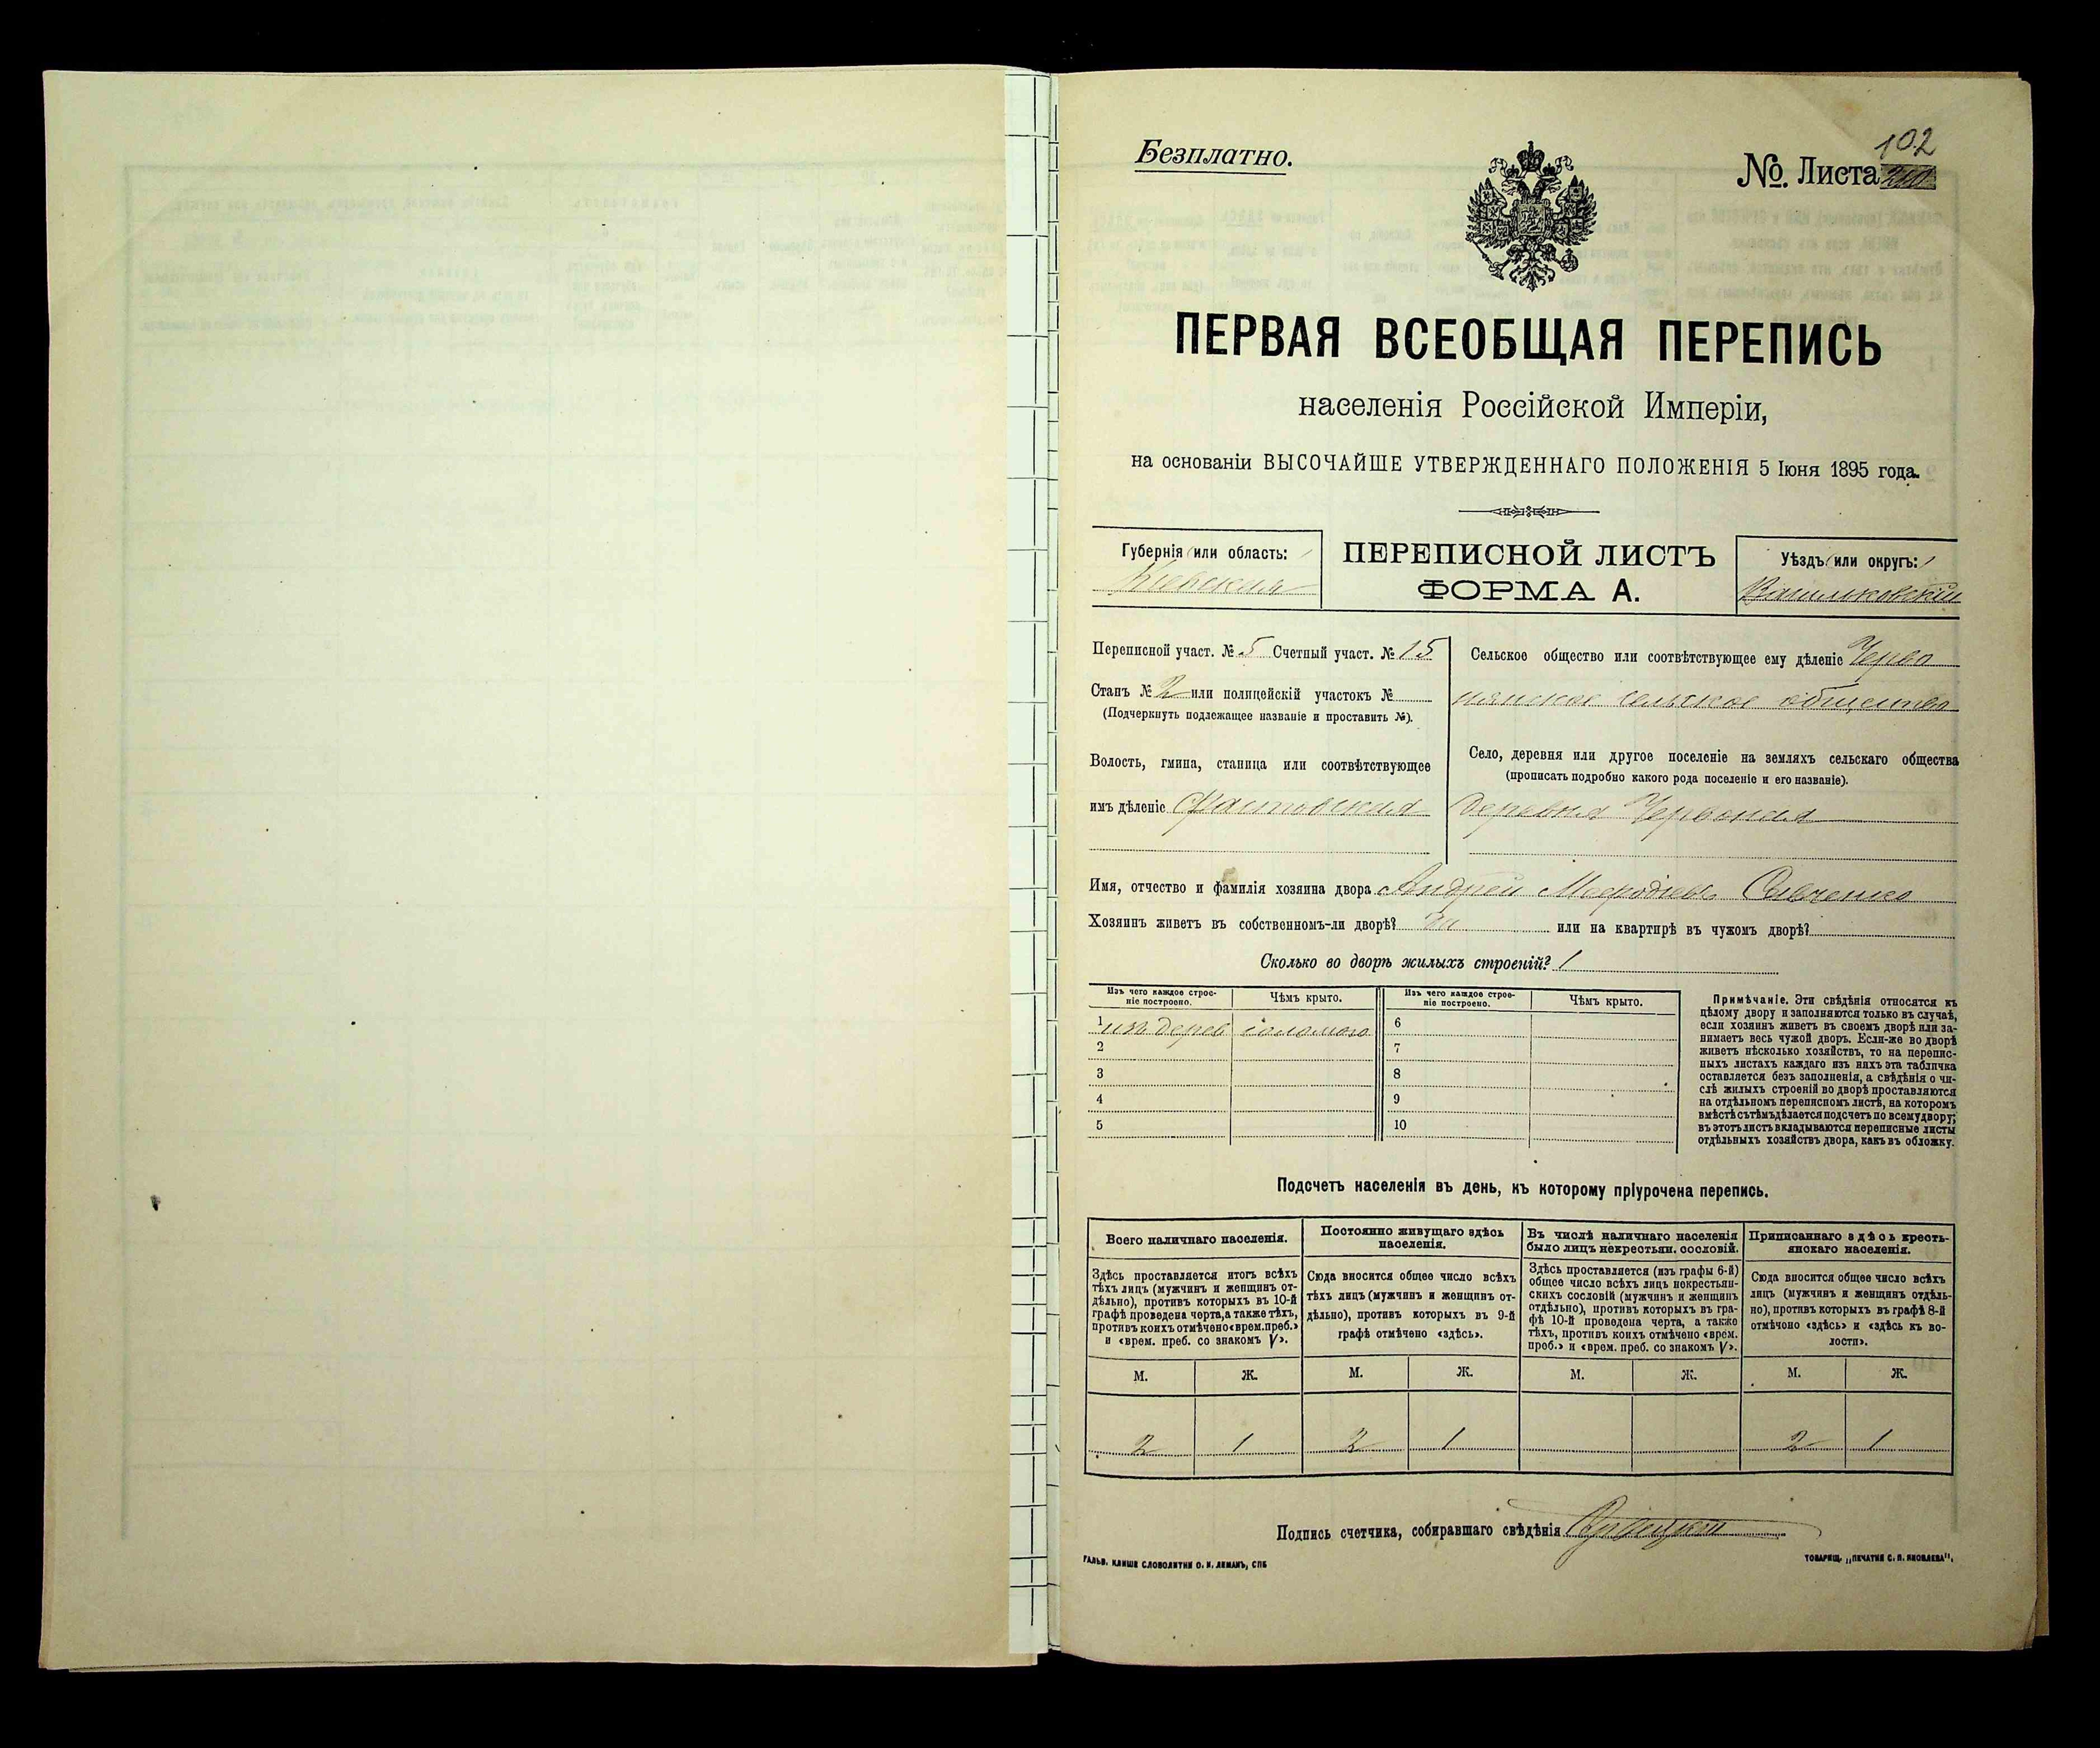 Безплатно.
102
№. Листа
ПЕРВАЯ ВСЕОБЩАЯ ПЕРЕПИСЬ
населенія Россійской Имперіи,
на основаніи ВЫСОЧАЙШЕ УТВЕРЖДЕННАГО ПОЛОЖЕНІЯ 5 Іюня 1895 года.
Губернія или область:
Кіевская
ПЕРЕПИСНОЙ ЛИСТЪ
ФОРМА А.
Уѣздъ или округъ:
Васильковскій
Переписной участ. № 5 Счетный участ. № 15
Станъ № 2 или полицейскій участокъ №
(Подчеркнуть подлежащее названіе и проставить №).
Волость, гмина, станица или соотвѣтствующее
имъ дѣленіе Фастовская
Сельское общество или соотвѣтствующее ему дѣленіе Черво
нянское сельское общество
Село, деревня или другое поселеніе на земляхъ сельскаго общества
(прописать подробно какого рода поселеніе и его названіе).
деревня Червоная
Имя, отчество и фамилія хозяина двора Андрей Мефодіевъ Савченко
Хозяинъ живетъ въ собственномъ-ли дворѣ? да или на квартирѣ въ чужомъ дворѣ?
Сколько во дворѣ жилыхъ строеній? 1
Изъ чего каждое строе-
ніе построено.
Чѣмъ крыто.
1 изъ дерев соломою
2
3
4
5
Изъ чего каждое строе-
ніе построено.
Чѣмъ крыто.
6
7
8
9
10
Примѣчаніе. Эти свѣдѣнія относятся къ
цѣлому двору и заполняются только въ случаѣ,
если хозяинъ живетъ въ своемъ дворѣ или за-
нимаетъ весь чужой дворъ. Если-же во дворѣ
живетъ нѣсколько хозяйствъ, то на перепис-
ныхъ листахъ каждаго изъ нихъ эта табличка
оставляется безъ заполненія, а свѣдѣнія о чи-
слѣ жилыхъ строеній во дворѣ проставляются
на отдѣльномъ переписномъ листѣ, на которомъ
вмѣстѣ съ тѣмъ дѣлается подсчетъ по всему двору;
въ этотъ листъ вкладываются переписные листы
отдѣльныхъ хозяйствъ двора, какъ въ обложку.
Подсчетъ населенія въ день, къ которому пріурочена перепись.
Всего наличнаго населенія.
Здѣсь проставляется итогъ всѣхъ
тѣхъ лицъ (мужчинъ и женщинъ от-
дѣльно), противъ которыхъ въ 10-й
графѣ проведена черта, а также тѣхъ,
противъ коихъ отмѣчено «врем. преб.»
и «врем. преб. со знакомъ V».
М. Ж.
2 1
Постоянно живущаго здѣсь
населенія.
Сюда вносится общее число всѣхъ
тѣхъ лицъ (мужчинъ и женщинъ от-
дѣльно), противъ которыхъ въ 9-й
графѣ отмѣчено «здѣсь».
М. Ж.
2 1
Въ числѣ наличнаго населенія
было лицъ некрестьян. сословій.
Здѣсь проставляется (изъ графы 6-й)
общее число всѣхъ лицъ некрестьян-
скихъ сословій (мужчинъ и женщинъ
отдѣльно), противъ которыхъ въ гра-
фѣ 10-й проведена черта, а также
тѣхъ, противъ коихъ отмѣчено «врем.
преб.» и «врем. преб. со знакомъ V».
М. Ж.
Приписаннаго здѣсь кресть-
янскаго населенія.
Сюда вносится общее число всѣхъ
лицъ (мужчинъ и женщинъ отдѣль-
но), противъ которыхъ въ графѣ 8-й
отмѣчено «здѣсь» и «здѣсь къ во-
лости».
М. Ж.
2 1
Подпись счетчика, собиравшаго свѣдѣнія
ГАЛЬВ. КЛИШЕ СЛОВОЛИТНИ О. И. ЛЕМАНЪ, СПБ
ТОВАРИЩ. „ПЕЧАТНЯ С. П. ЯКОВЛЕВА“.